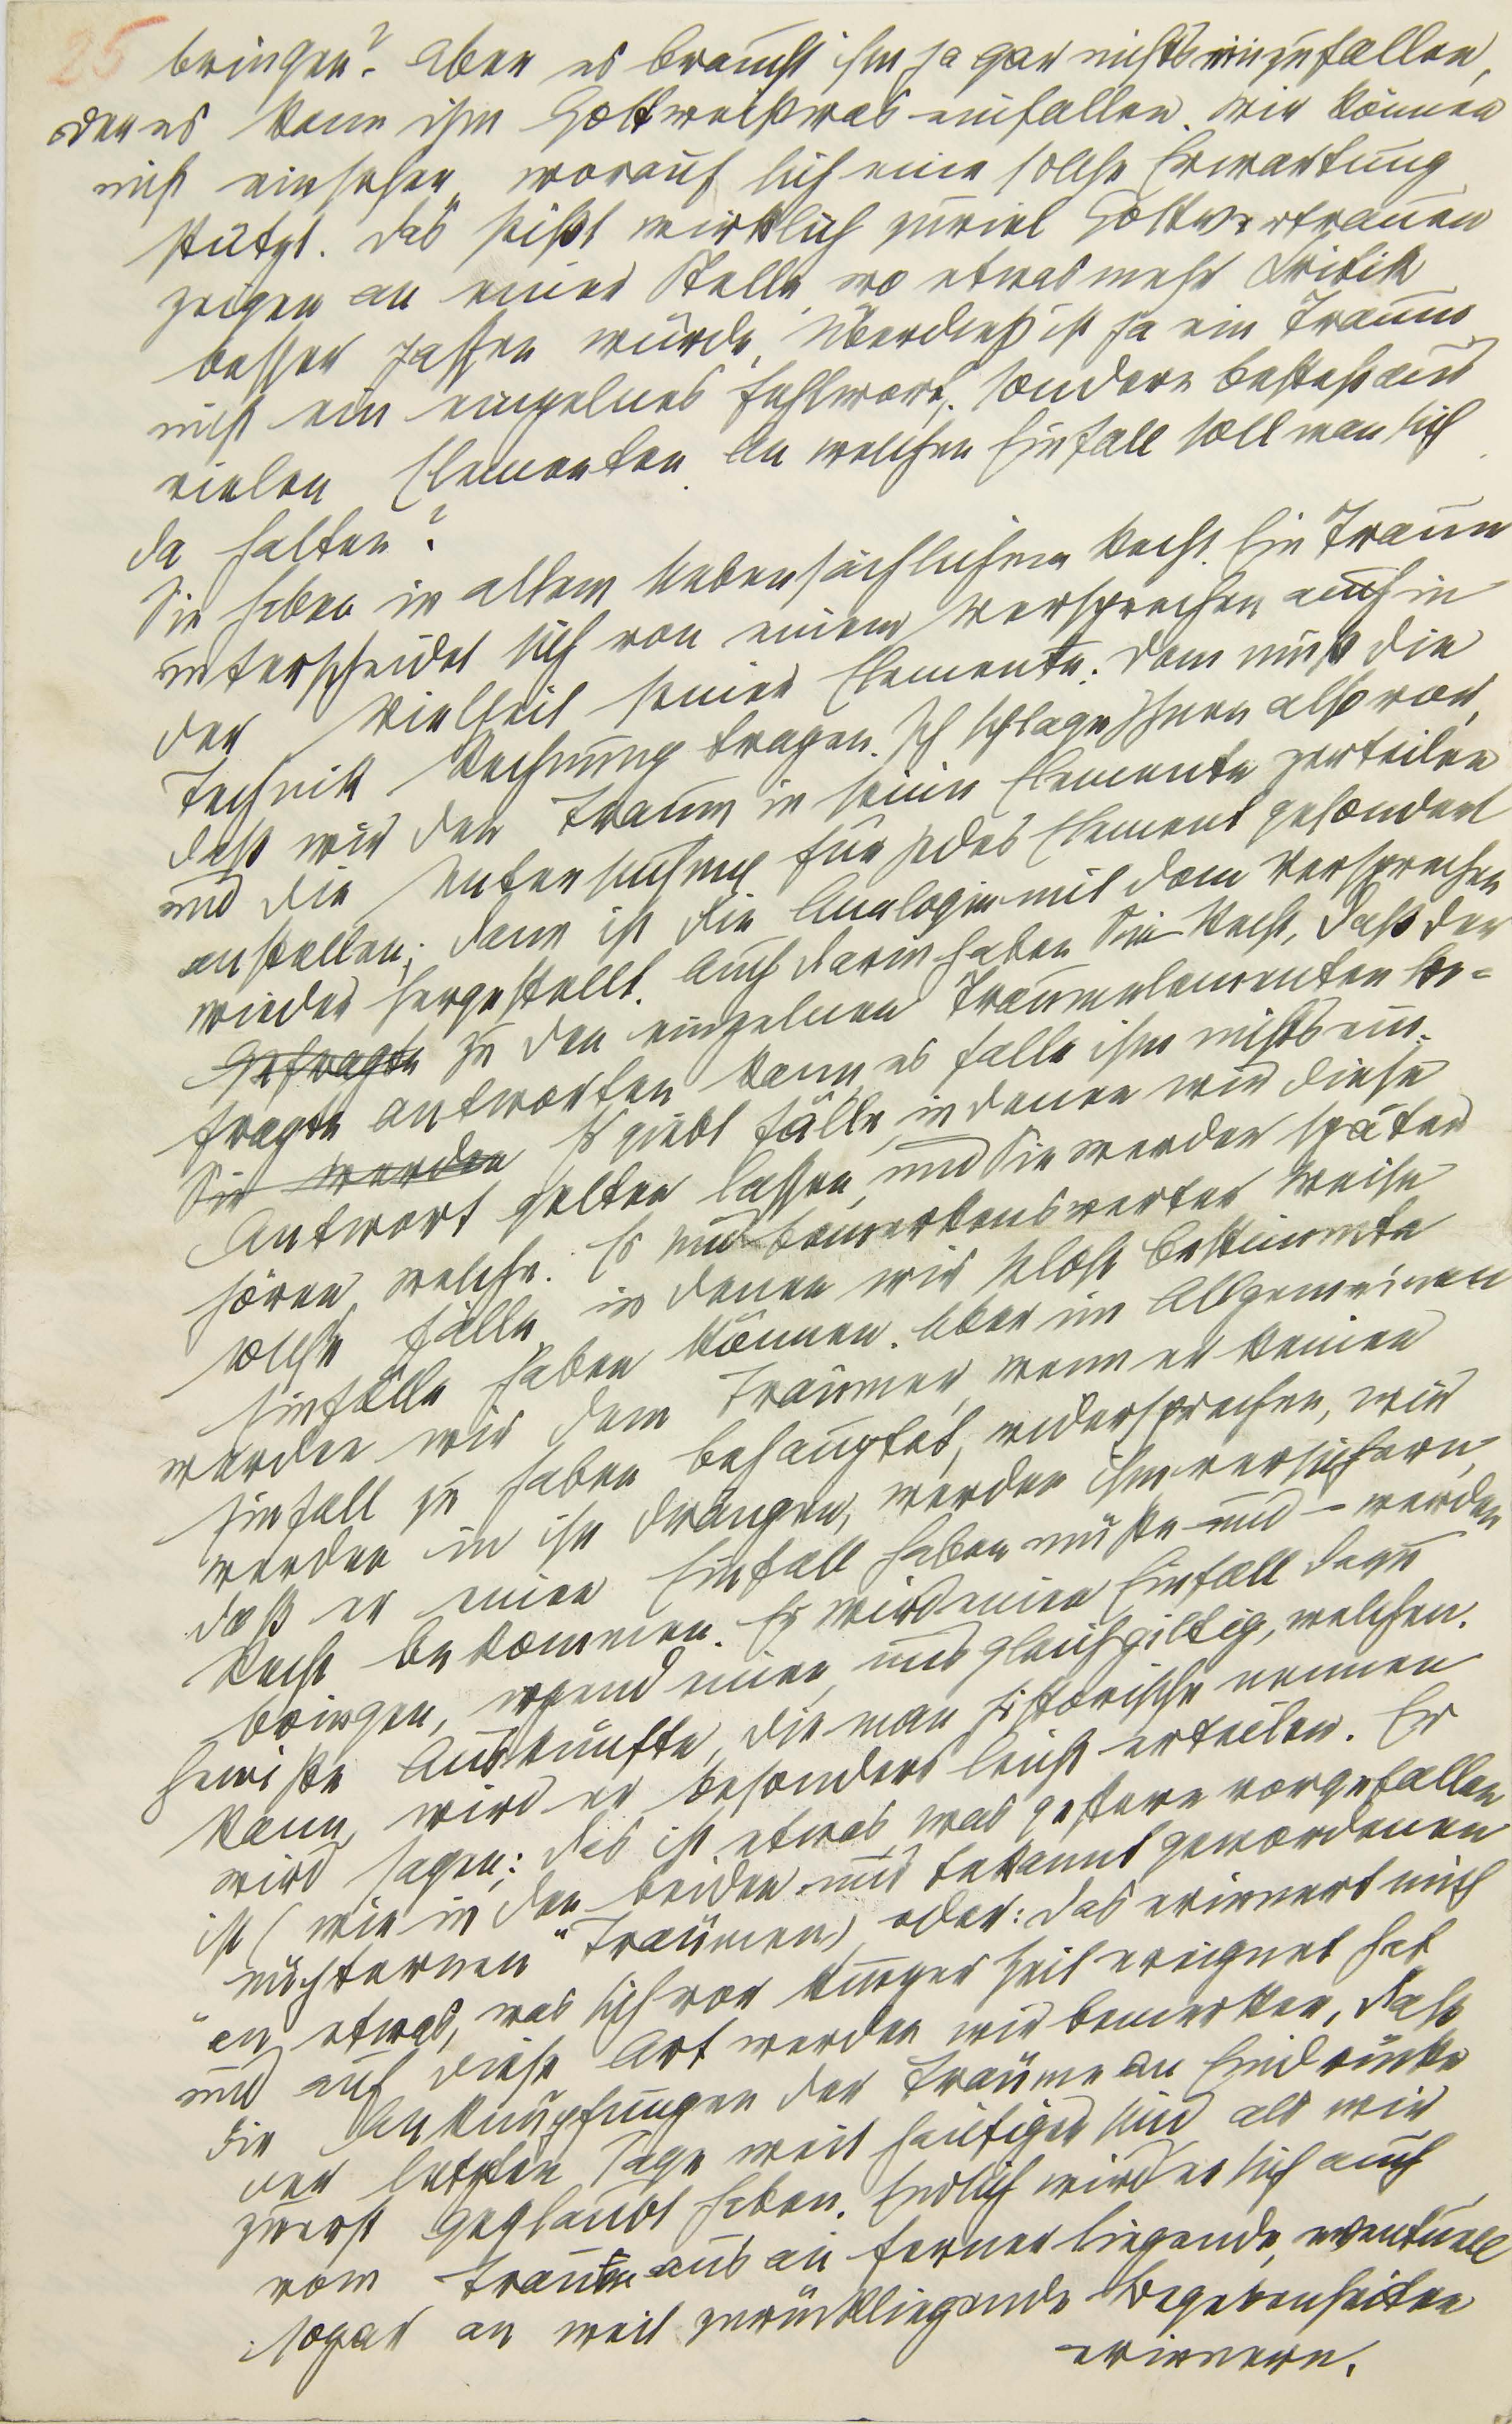 25
bringen? Aber es braucht ihm ja gar nichts einzufallen,
oder es kann ihm Gottweißwas einfallen. Wir können
nicht einsehen, worauf sich eine solche Erwartung
stützt. Das heißt wirklich zuviel Gottvertrauen
zeigen an einer Stelle, wo etwas mehr Kritik
besser passen würde. Überdieß ist ja ein Traum
nicht ein einzelnes Fehlwort, sondern besteht aus
vielen Elementen. An welchen Einfall soll man sich
da halten?
Sie haben in allem Nebensächlichen Recht. Ein Traum
unterscheidet sich von einem Versprechen auch in
der Vielheit seiner Elemente. Dem muß die
Technik Rechnung tragen. Ich schlage Ihnen also vor,
daß wir den Traum in seine Elemente zerteilen
und die Untersuchung für jedes Element gesondert
anstellen; dann ist die Analogie mit dem Versprechen
wieder hergestellt. Auch darin haben Sie Recht, daß der
Gefragte zu den einzelnen Traumelementen be-
fragte antworten kann, es falle ihm nichts ein.
Sie werden Es giebt Fälle, in denen wir diese
Antwort gelten lassen, und Sie werden später
hören, welche. Es sind bemerkenswerter Weise
solche Fälle, in denen wir selbst bestimmte
Einfälle haben können. Aber im Allgemeinen
werden wir dem Träumer, wenn er keinen
Einfall zu haben behauptet, widersprechen, wir
werden in ihn drängen, werden ihm versichern,
daß er einen Einfall haben müße und – werden
Recht bekommen. Er wird einen Einfall dazu
bringen, irgend einen, uns gleichgiltig, welchen.
Gewiße Auskünfte, die man historische nennen
kann, wird er besonders leicht erteilen. Er
wird sagen: Das ist etwas, was gestern vorgefallen
ist (wie in den beiden uns bekannt gewordenen
"nüchternen" Träumen) oder: Das erinnert mich
an etwas, was sich vor kurzer Zeit ereignet hat
und auf diese Art werden wir bemerken, daß
die Anknüpfungen der Träume an Eindrücke
der letzten Tage weit häufiger sind als wir
zuerst geglaubt haben. Endlich wird er sich auch
vom Traum aus an ferner liegende, eventuell
sogar an weit zurückliegende Begebenheiten
erinnern.